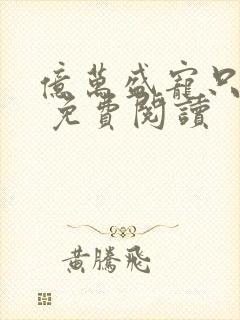 億萬盛寵只
免費閱讀
黃騰飛